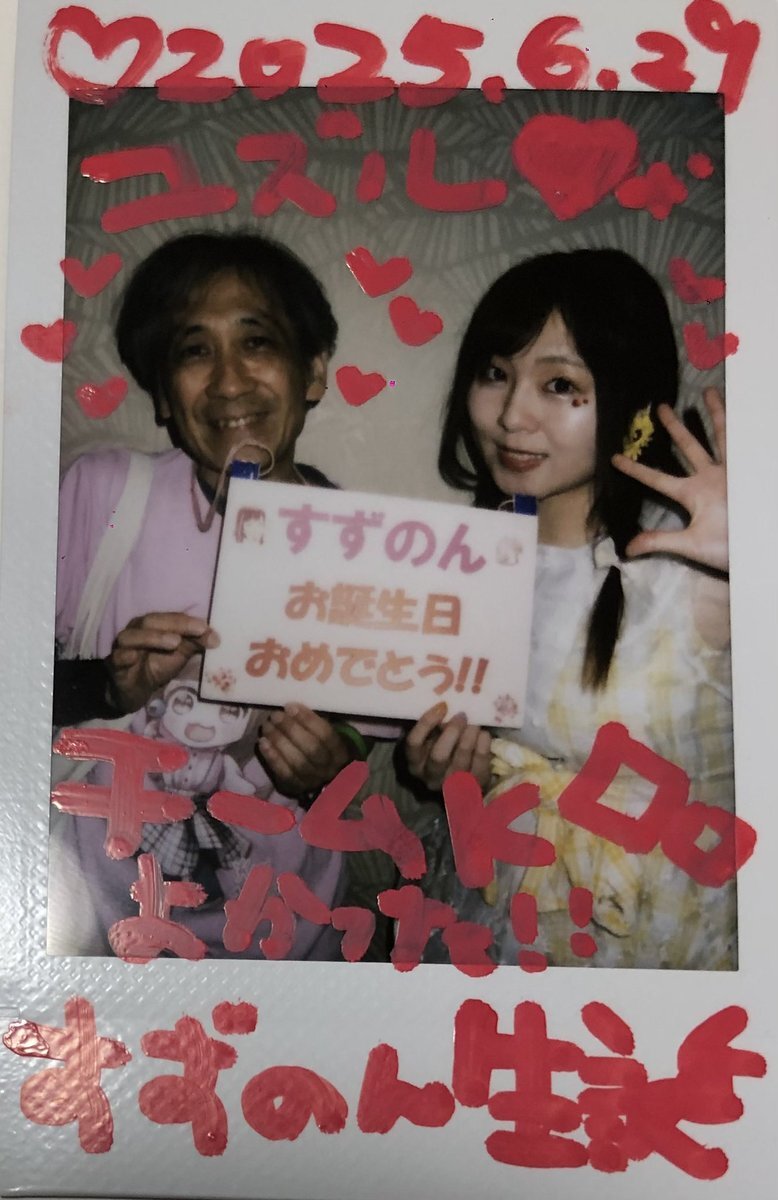 ♡2025.6.29
ユズル♥
すずのん
お誕生日
おめでとう!!
チームK
よかった!!
すずのん生誕